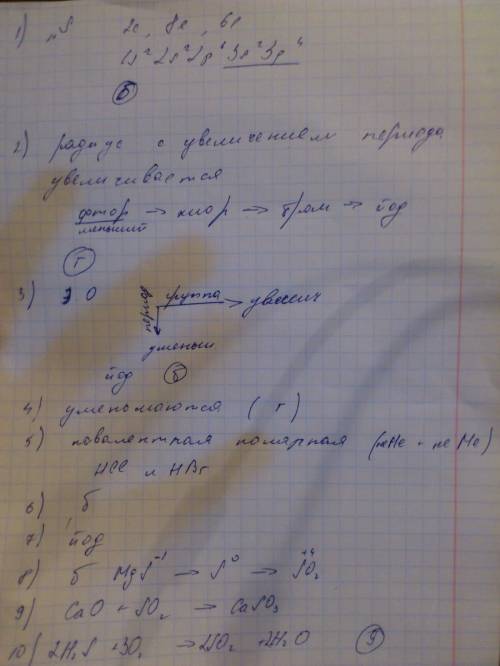 1) ₁₆S 2e, 8e, 6e
1s² 2s² 2p⁶ 3s² 3p⁴
б
2) радиус с увеличением периода
увеличивается
фтор → хлор → бром → йод
меньший
г
3) Э О период группа → увелич
уменьш.
йод б
4) уменьшаются (г)
5) ковалентная полярная (неМе + неМе)
HCl и HBr
6) б
7) йод
8) б MgS⁻¹ → S⁰ → SO₂⁺⁴
9) CaO + SO₂ → CaSO₃
10) 2H₂S + 3O₂ → 2SO₂ + 2H₂O 9